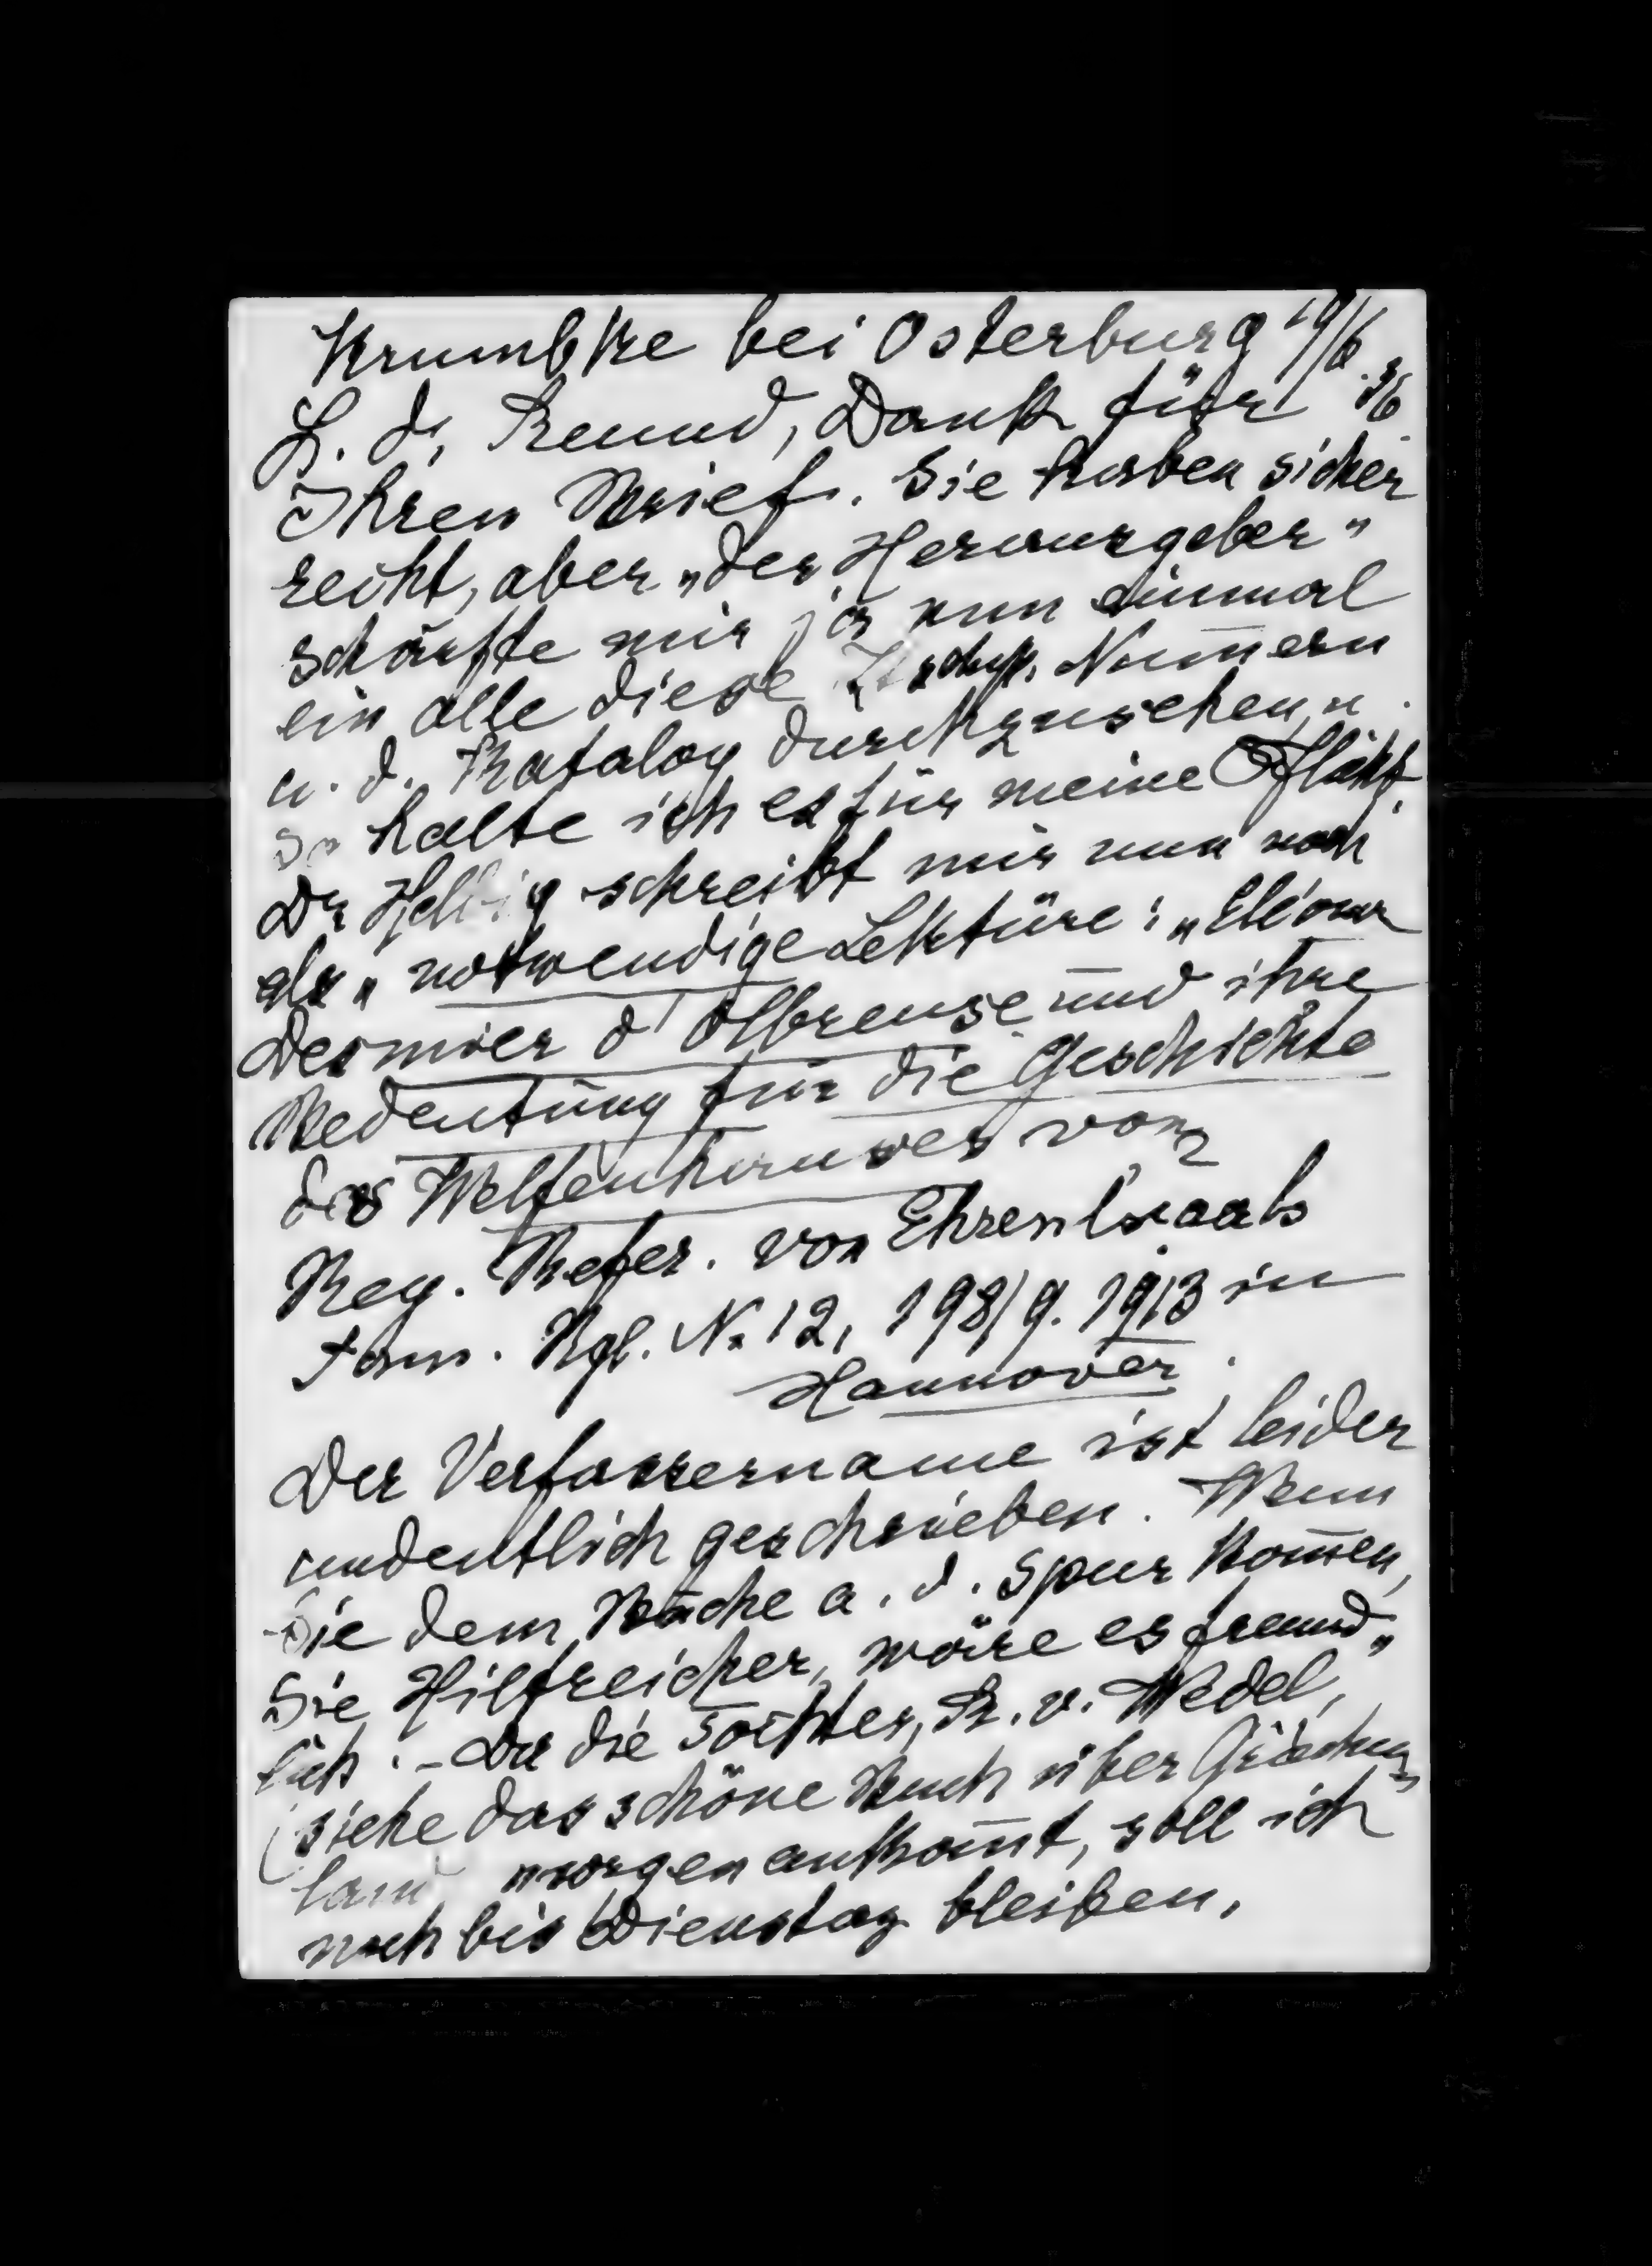 Krumbke bei Osterburg 19/6.36.
L. d. Freund, Dank für
Ihren Brief. Sie haben sicher
recht, aber „der Herausgeber"
schärfte mir ja nun einmal
ein alle diese Num̅ern
u. d. Katalog durchzusehen, u.
so halte ich es für meine Pflicht.
Dr Helbig schreibt mir nun noch
als „notwendige Lektüre: „Eléonor
Desmier d'Olbreuse und ihre
Bedeutung für die Geschichte
des Welfenhauses von
Reg. Refer. von
Han. Bgl. No 12, 198/9. 1913 in
Hannover.
Der Verfassername ist leider
undeutlich geschrieben. Wenn
Sie dem Buche a. d. Spur kom̅en,
Sie Hilfreicher, wäre es freund„
lich. – Da die Tochter, Fr. v. Wedel,
(siehe das schöne Buch über Griechen„
land morgen ankom̅t, soll ich
noch bis Dienstag bleiben,